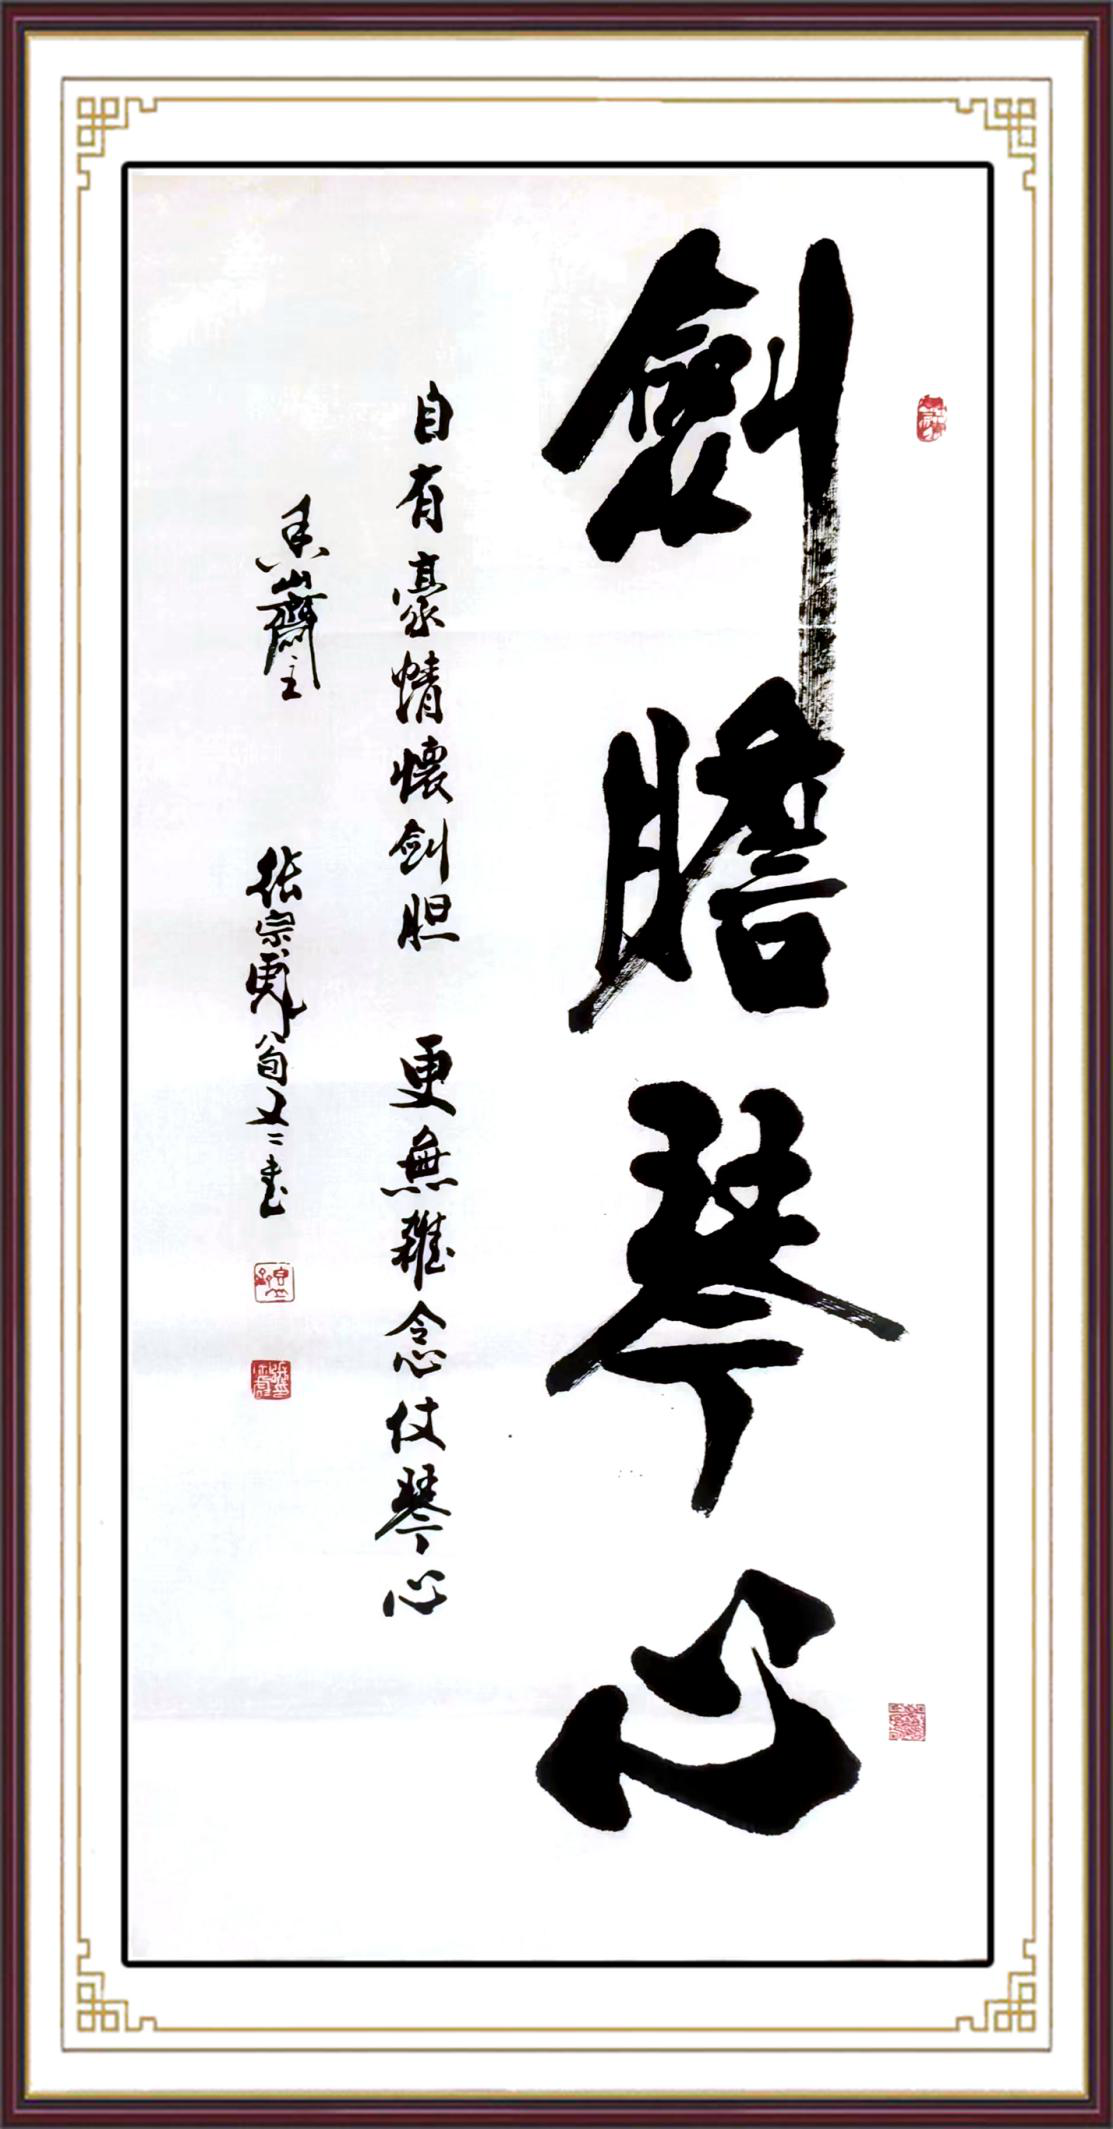 劍膽琴心
自有豪情懷劍胆 更無雜念仗琴心
山齋主
張宗彪 又二書